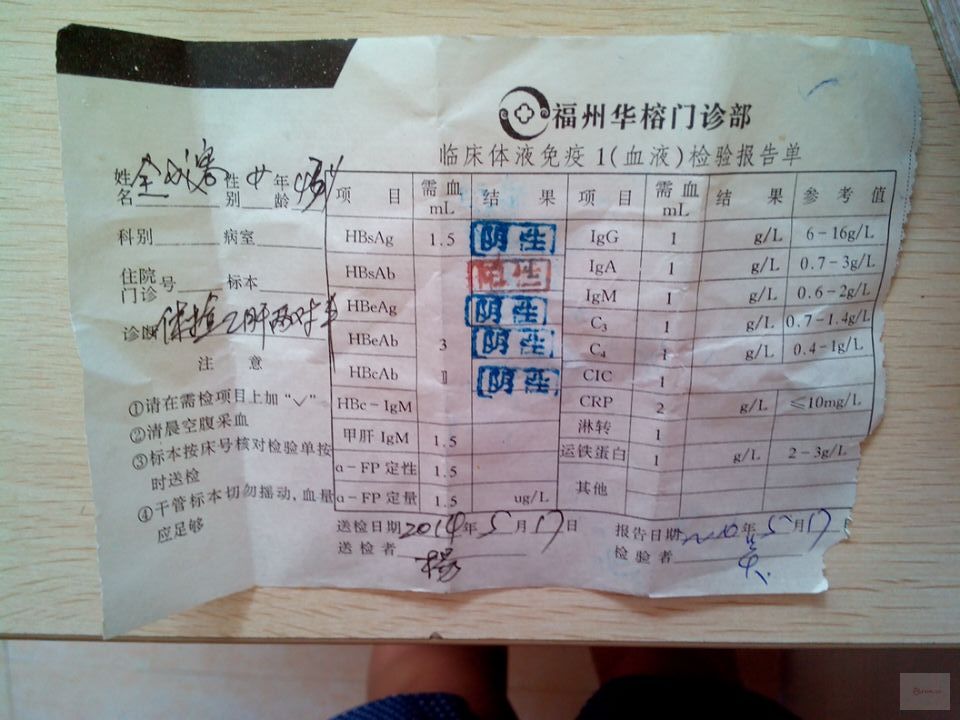 福州华榕门诊部
临床体液免疫1(血液)检验报告单
姓名 性别 女 年龄
科别 病室
住院门诊号 标本
诊断 保检乙肝两对半
注 意
①请在需检项目上加“✓”
②清晨空腹采血
③标本按床号核对检验单按
时送检
④干管标本切勿摇动,血量
应足够
项 目 需血mL 结 果 项 目 需血mL 结 果 参考值
HBsAg 1.5 阴性 IgG 1 g/L 6-16g/L
HBsAb 阳性 IgA 1 g/L 0.7-3g/L
HBeAg 阴性 IgM 1 g/L 0.6-2g/L
HBeAb 3 阴性 C₃ 1 g/L 0.7-1.4g/L
HBcAb 阴性 C₄ 1 g/L 0.4-1g/L
CIC 1
HBc-IgM CRP 2 g/L ≤10mg/L
甲肝 IgM 1.5 淋转 1
α-FP 定性 1.5 运铁蛋白 1 g/L 2-3g/L
α-FP 定量 1.5 ug/L 其他
送检日期 2014年5月17日 报告日期 年5月17
送检者 杨 检验者